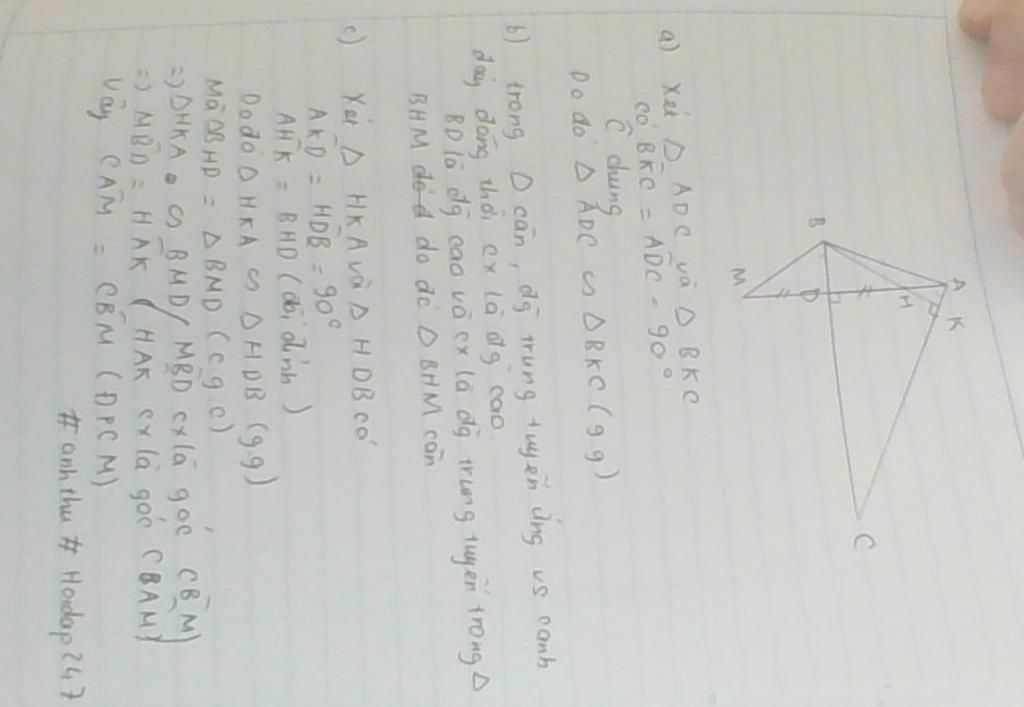 A
K
H
B
D
M
C
a) Xét Δ ADC và Δ BKC
có BK̂C = AD̂C = 90°
Ĉ chung
Do đó Δ ADC ∽ Δ BKC (g.g)
b) trong Δ cân, đg trung tuyến ứng vs cạnh
đáy đồng thời cx là đg cao
BD là đg cao và cx là đg trung tuyến trong Δ
BHM do đó Δ BHM cân
c) Xét Δ HKA và Δ HDB có
AK̂D = HD̂B = 90°
AĤK = BĤD (đối đỉnh)
Do đó Δ HKA ∽ Δ HDB (g.g)
Mà ΔBHD = Δ BMD (c g c)
=> ΔHKA ∽ BMD (MB̂D cx là góc CB̂M)
=> MB̂D = HÂK (HAK cx là góc CBÂM)
Vậy CÂM = CB̂M (ĐPCM)
# anhthu # Hoidap247